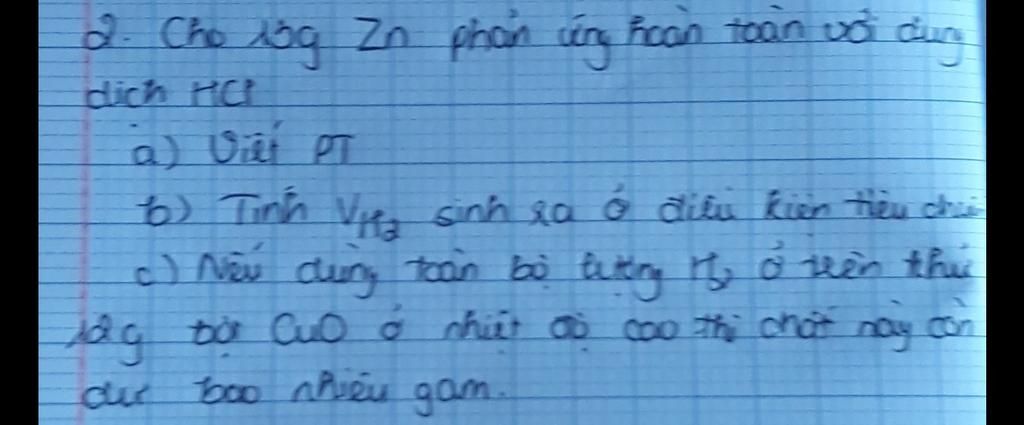 2. Cho 13g Zn phản ứng hoàn toàn với dung
dịch HCl
a) Viết PT
b) Tính VH2 sinh ra ở điều kiện tiêu chuẩn
c) Nếu dùng toàn bộ lượng H2 ở trên khử
12g bột CuO ở nhiệt độ cao thì chất nào còn
dư bao nhiêu gam.